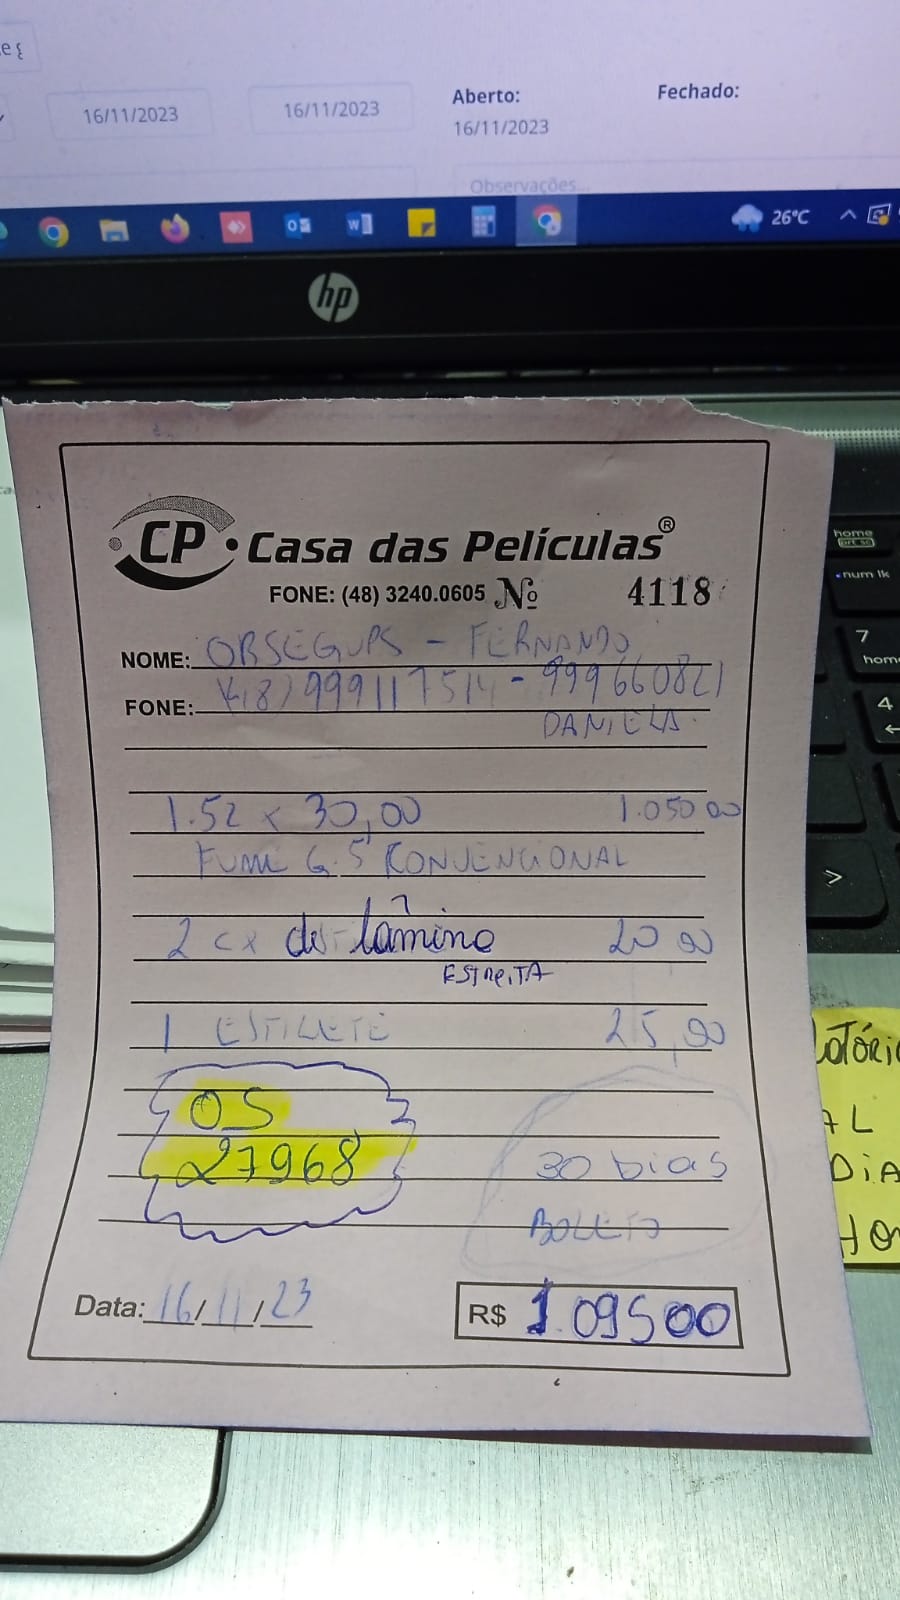 16/11/2023
16/11/2023
Aberto:
16/11/2023
Fechado:
Observações...
26°C
hp
CP Casa das Películas®
FONE: (48) 3240.0605 Nº 4118
NOME: OBSEGURS - FERNANDO
FONE: (48) 999117514 - 999660821
DANIELA
1.52 x 30,00 1.050 00
FUMÊ G.5 CONVENCIONAL
2 cx de lâmina 20 00
ESTREITA
1 ESTILETE 25,00
OS
27968
30 Dias
BOLETO
Data: 16/11/23
R$ 1.095 00
home
prt sc
num lk
7
home
4